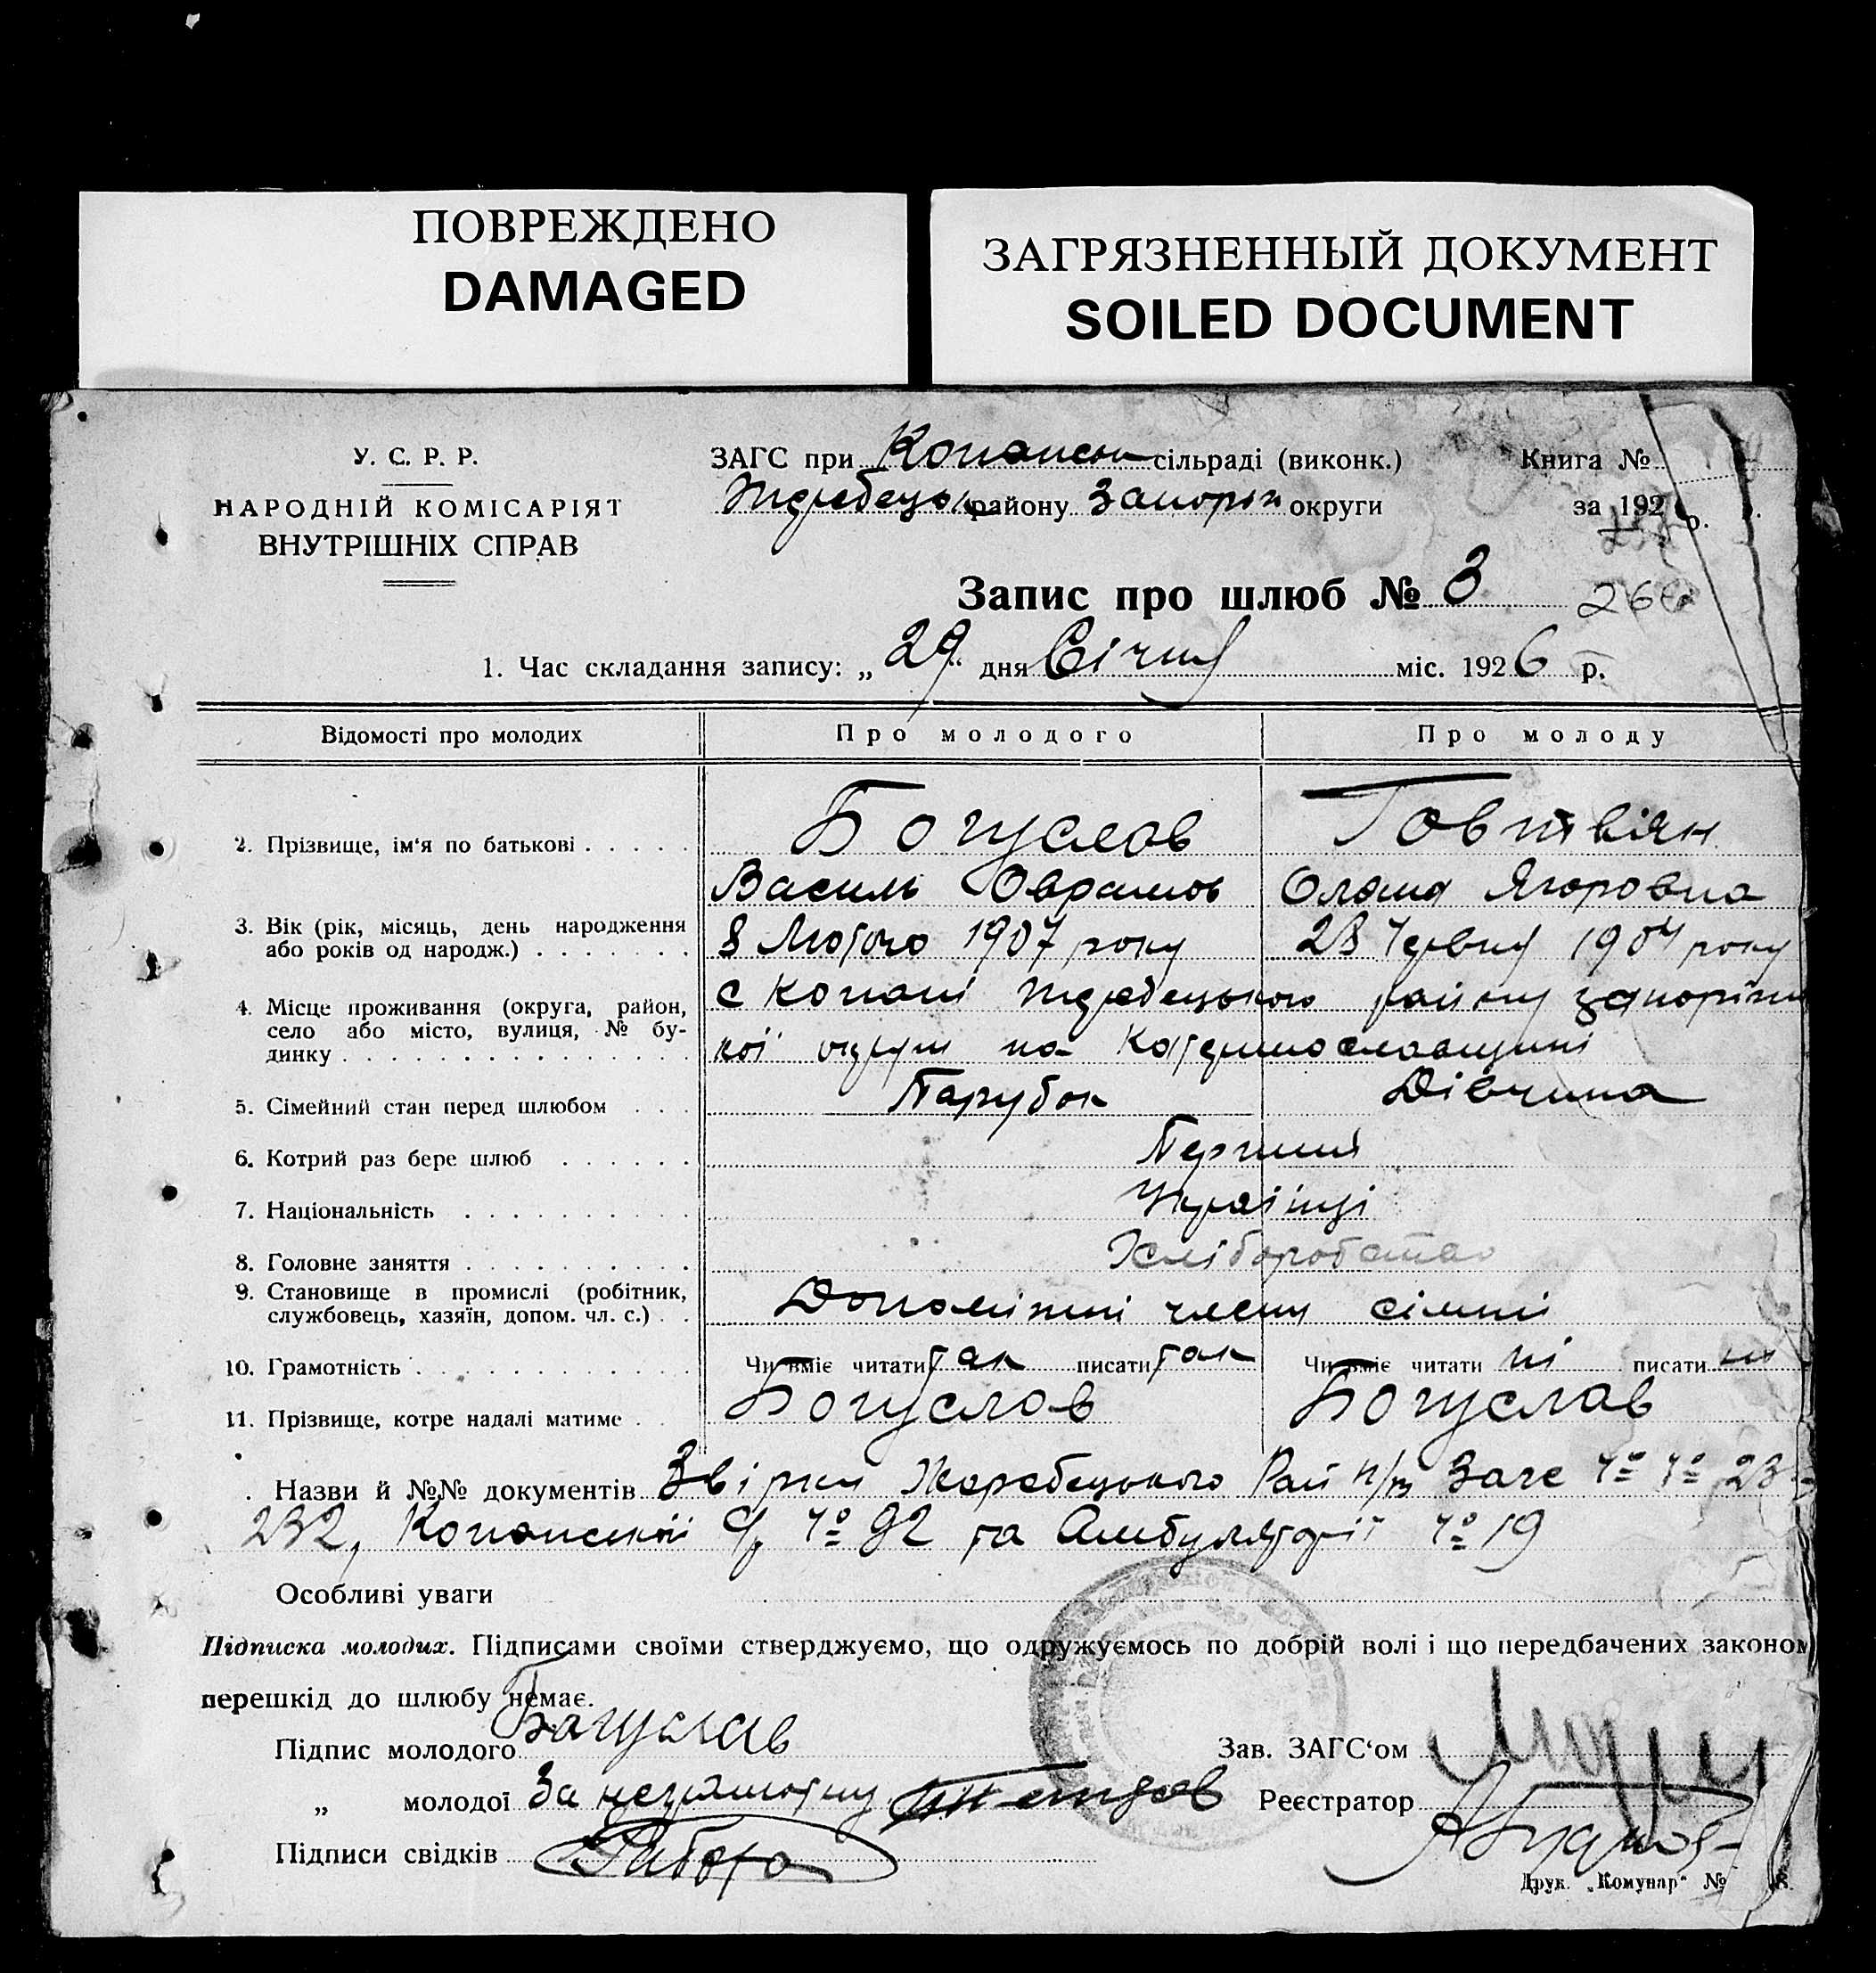 ПОВРЕЖДЕНО
DAMAGED
ЗАГРЯЗНЕННЫЙ ДОКУМЕНТ
SOILED DOCUMENT
У. С. Р. Р.
НАРОДНІЙ КОМІСАРІЯТ
ВНУТРІШНІХ СПРАВ
ЗАГС при Копанськ сільраді (виконк.)
району Запоріж округи
Книга №
за 192 р.
Запис про шлюб № 3
1. Час складання запису: „29“ дня Січня міс. 1926 р.
Відомості про молодих
Про молодого
Про молоду
2. Прізвище, ім'я по батькові . . . . .
Богуслав
Василь Оврамов
Говтвян
Ягоровна
3. Вік (рік, місяць, день народження
або років од народж.) . . . . . . .
8 Лютого 1907 року
28 Червня 1904 року
4. Місце проживання (округа, район,
село або місто, вулиця, № бу-
динку . . . . . . . . . . . . . . .
с Копані району
кої округи на Катеринославщині
5. Сімейний стан перед шлюбом . . .
Парубок
Дівчина
6. Котрий раз бере шлюб . . . . . .
Перший
7. Національність . . . . . . . . . .
Українці
8. Головне заняття . . . . . . . . . .
9. Становище в промислі (робітник,
службовець, хазяїн, допом. чл. с.) . .
Допоміжні члени сімні
10. Грамотність . . . . . . . . . . . .
Чи вміє читати так писати так
Чи вміє читати ні писати ні
11. Прізвище, котре надалі матиме . .
Богуслав
Богуслав
Назви й №№ документів Жеребецького Рай Загс
232, Копанської № 92 та Амбуляторії № 19
Особливі уваги
Підписка молодих. Підписами своїми стверджуємо, що одружуємось по добрій волі і що передбачених законом
перешкід до шлюбу немає.
Підпис молодого Богуслав
„ молодої За неграмотну
Підписи свідків
Зав. ЗАГС'ом
Реєстратор
Друк. „Комунар“ №